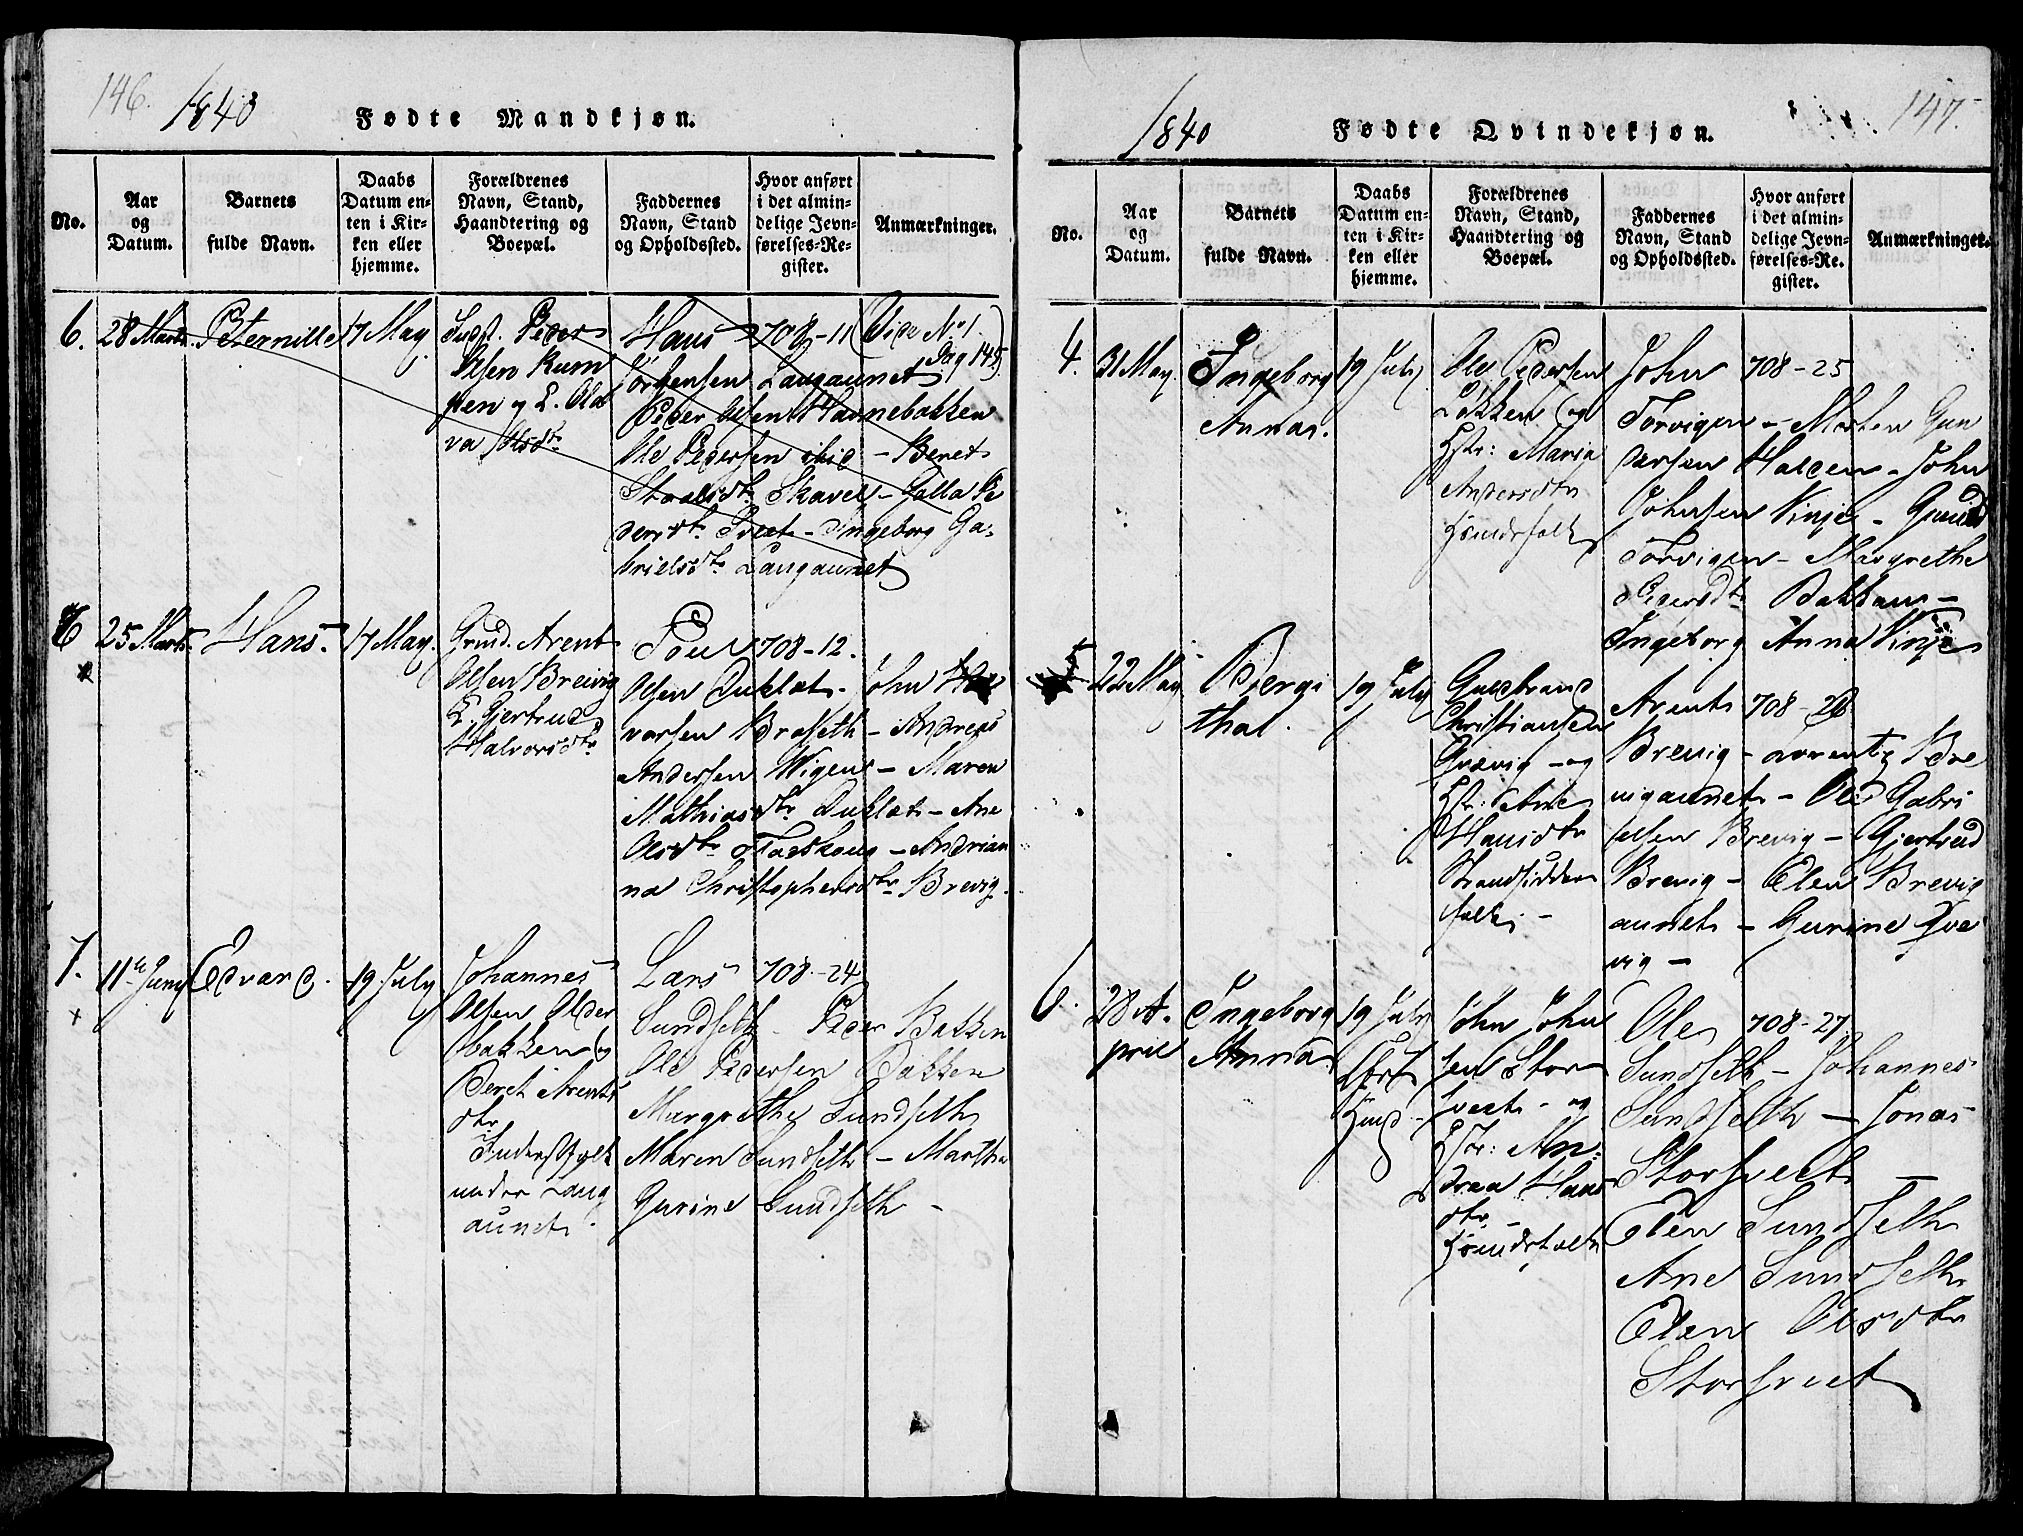 146.
1840
Fødte Mandkjøn.
No.
Aar
og
Datum.
Barnets
fulde Navn.
Daabs
Datum en-
ten i Kir-
ken eller
hjemme.
Forældrenes
Navn, Stand,
Haandtering og
Boepæl.
Faddernes
Navn, Stand
og Opholdssted.
Hvor anført
i det almin-
delige Jevn-
førelses-Re-
gister.
Anmærkninger.
6.
28 Marts.
Peternille
17 May
Indst. Peder
Olsen Kum
pen og E. Ole
va Olsdtr
Hans 708-11 (Vide No 1.
Jørgensen Langaunet Pag 145)
Peder Olsen Havnebakken
Ole Pedersen ibid - Beret
Skavel - Golla Pe
dersdtr. Tvet - Ingeborg Ga-
brielsdtr Langaunet
6
25 Marts.
Hans.
17 May.
Grud. Arent
Olsen Breivig
E. Gjertrud
Halvorsdtr
Poul 708-12.
Olsen Duklæt. John
varsen Braseth - Andreas
Andersen Wigen - Maren
Mathiasdtr Duklæt - Ane
Olsdtr - Andrian
na Christophersdtr Brevig.
7.
11te Juny
Edvard.
19 July
Johannes
Olsen Older
bakken og
Beret Arents
dtr
Inderstfolk
under Lang
aunet.
Lars 708-24
Sundseth - Peder Bakken
Ole Pedersen Bakken
Margrethe Sundseth
Maren Sundseth - Martha
Gurine Sundseth -
147.
1840
Fødte Qvindekjøn.
No.
Aar
og
Datum.
Barnets
fulde Navn.
Daabs
Datum en-
ten i Kir-
ken eller
hjemme.
Forældrenes
Navn, Stand,
Haandtering og
Boepæl.
Faddernes
Navn, Stand
og Opholdssted.
Hvor anført
i det almin-
delige Jevn-
førelses-Re-
gister.
Anmærkninger.
4.
31 May.
Ingeborg
Anna.
19 July.
Ole Pedersen
Løkken og
Hstr: Maria
Andersdtr
Huusfolk
John 708-25
Torvigen - Morten Gun
dersen Halsen - John
Johnsen Vinje - Gunild
Torvigen - Margrethe
Pedersdtr Bakken -
Ingeborg Anna Vinje
5
22 May
Bergi
thal.
19 July
Guldbrand
Christiansen
Qvævig - og
Hstr: Ane
Hansdtr
Strandsidder
folk. -
Arent 708-26
Brevig - Lorentz Bre
vigaunet - Ole Gabri
elsen Brevig - Gjertrud
Brevig - Elen Brevig
aunet - Gurine Qve
vig -
6.
28 A-
pril
Ingeborg
Anna
19 July
John John
sen Stor
tvedt - og
Hstr: An-
drea Hans
dtr -
Huusfolk
Ole 708-27
Sundseth - Johannes
Sundseth - Jonas
Storsveet -
Elen Sundseth
Ane Sundseth
Elen Olsdtr
Storsveet